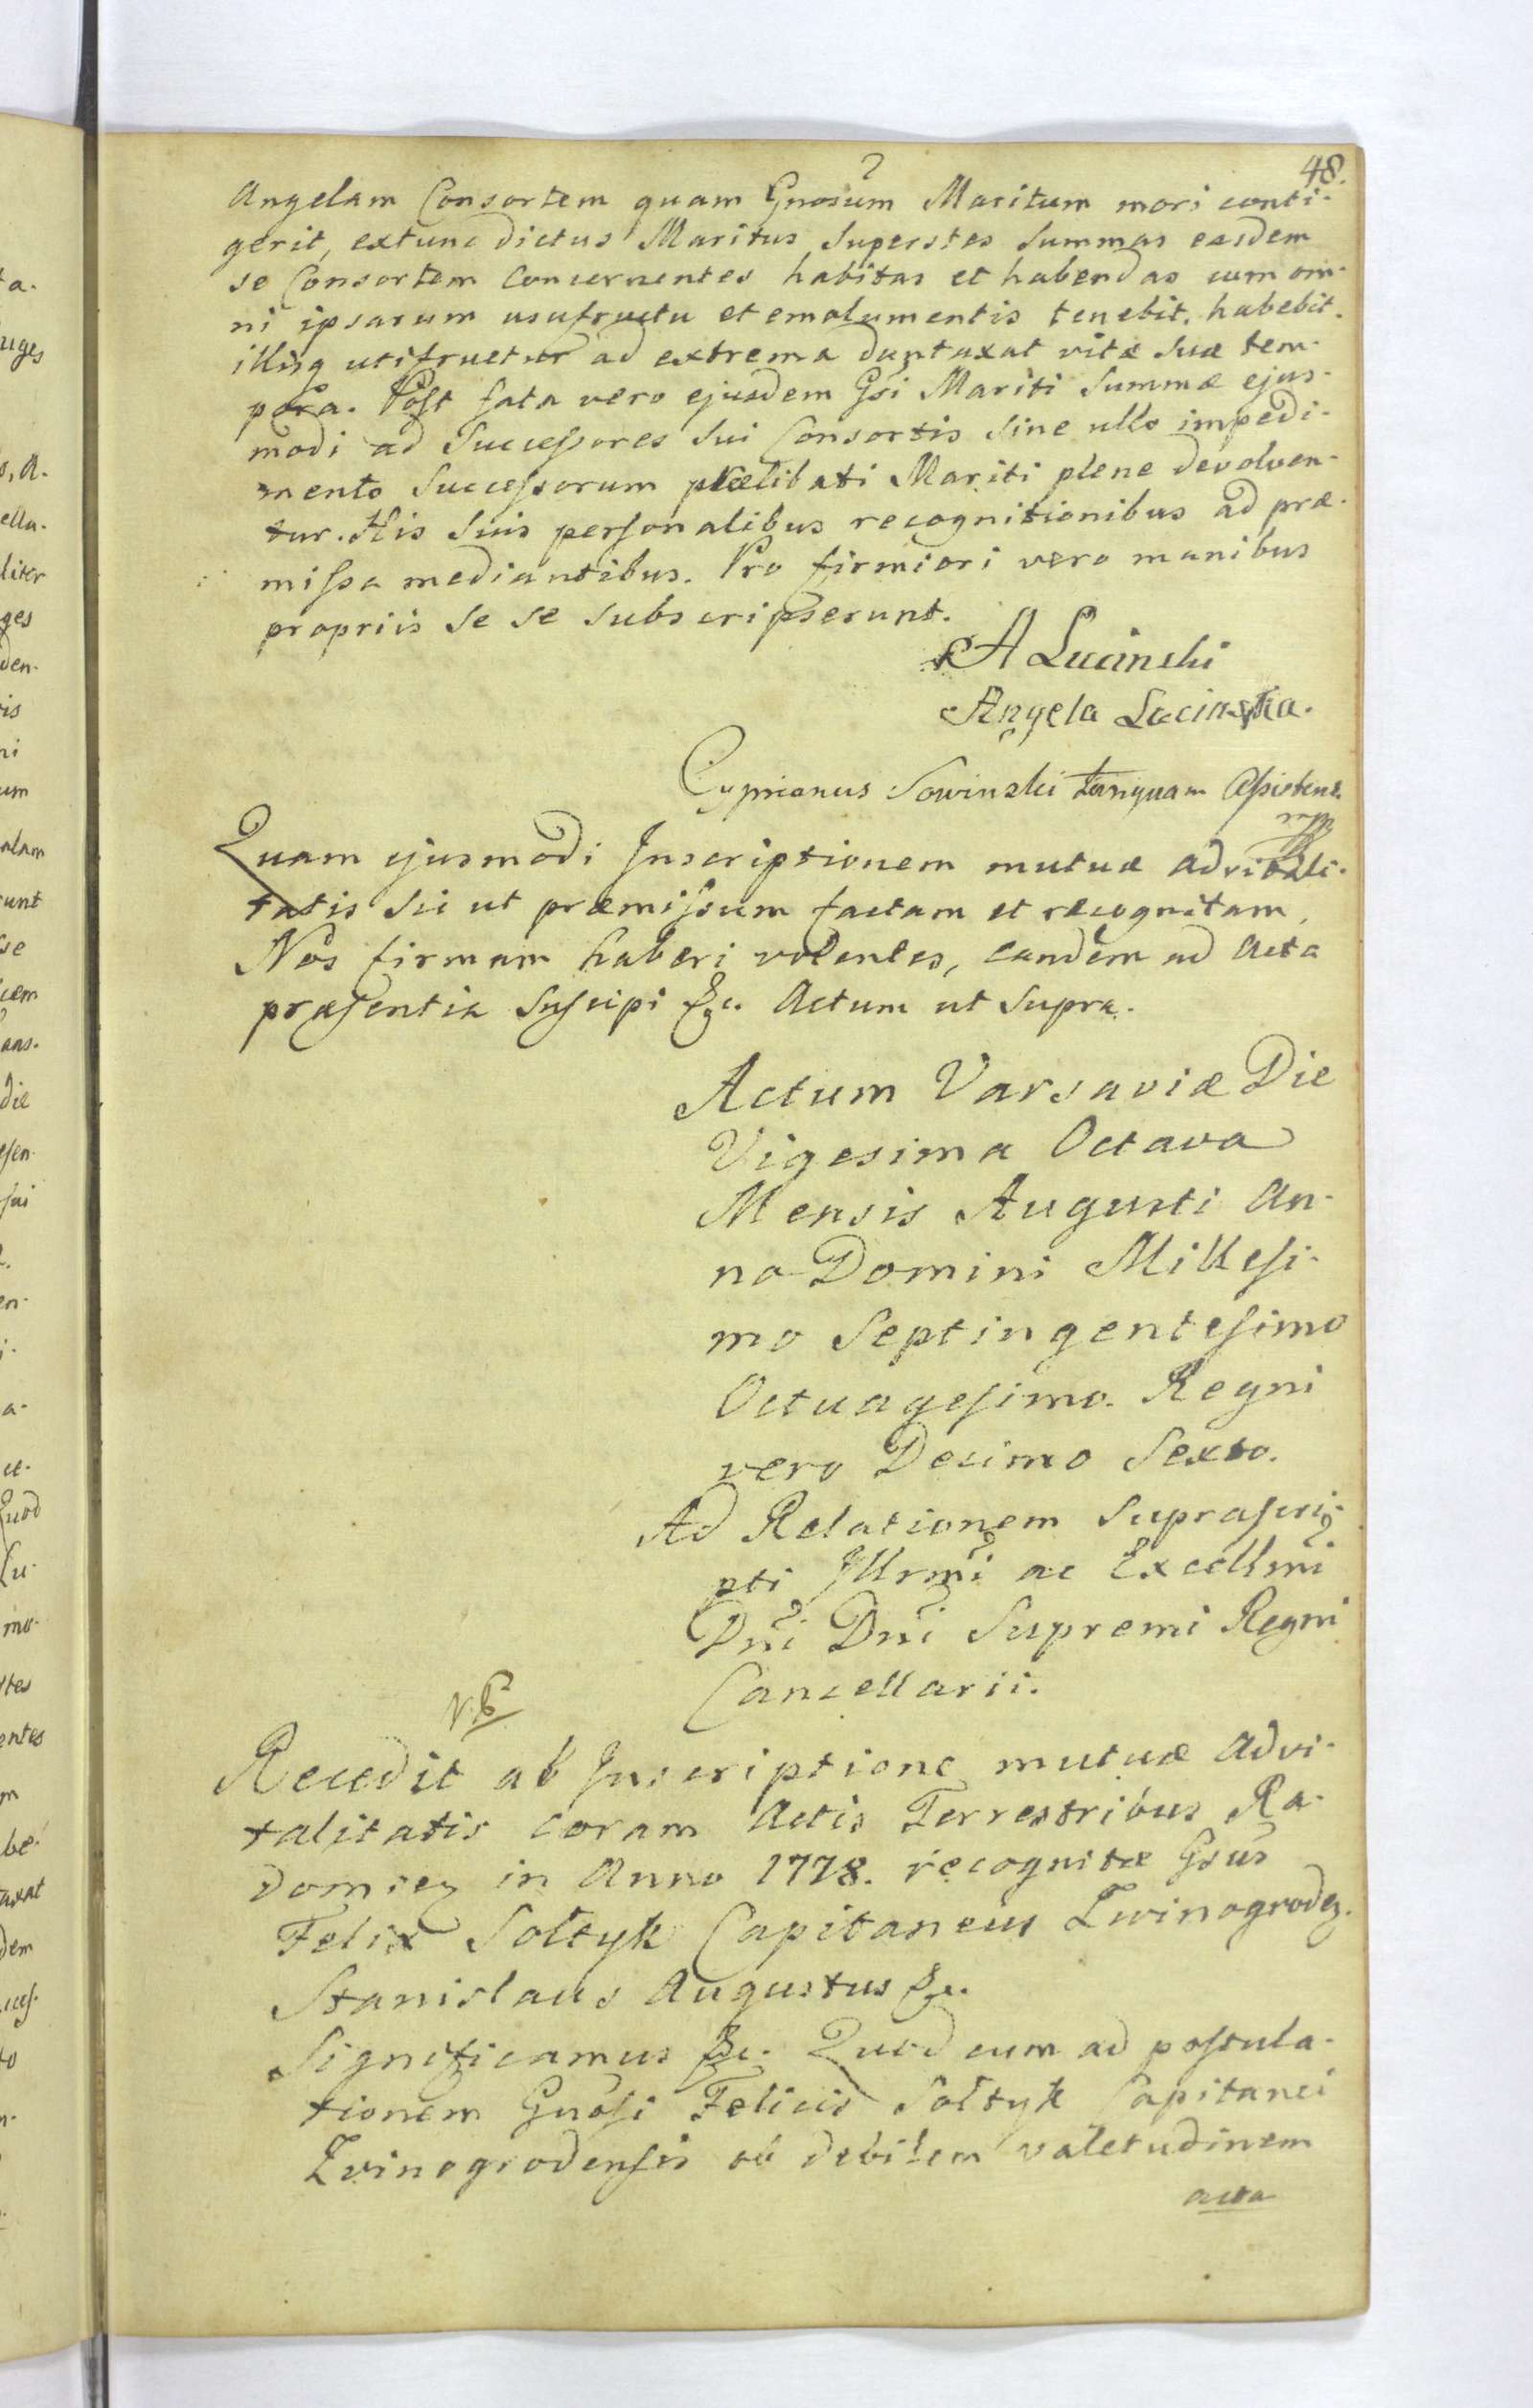 48.
Angelam Consortem quam Gnosum Maritum mori conti-
gerit, extunc dictus Maritus Superstes Summas easdem
se Consortem concernentes habitas et habendas cum om-
ni ipsarum usufructu et emolumentis tenebit, habebit.
illisq utifruetur ad extrema duntaxat vitæ suæ tem-
pora. Post fata vero ejusdem Gsi Mariti Summæ ejus-
modi ad Successores sui Consortis sine ullo impedi-
mento Successorum prælibati Mariti plene devolven-
tur. His suis personalibus recognitionibus ad præ-
missa mediantibus. Pro firmiori vero manibus
propriis se se subscripserunt.
A Lucinski
Angela Lucinska.
Cyprianus Sowinski tanquam Assistens.
mpp
Quam ejusmodi Inscriptionem mutuæ advitali-
tatis sic ut præmissum factam et recognitam,
Nos firmam haberi volentes, eandem ad Acta
præsentia suscipi &c. Actum ut supra.
Actum Varsaviæ Die
Vigesima Octava
Mensis Augusti An-
no Domini Millesi-
mo Septingentesimo
Octuagesimo. Regni
vero Decimo Sexto.
Ad Relationem suprascri-
pti Illrmi ac Excellmi
Dni Dni Supremi Regni
Cancellarii.
N.B
Recedit ab Inscriptione mutuæ advi-
talitatis coram Actis Terrestribus Ra-
domien in Anno 1778. recognitæ Gsus
Felix Soltyk Capitaneus Zwinogroden.
Stanislaus Augustus &c.
Significamus &c. Quod cum ad postula-
tionem Gnosi Felicis Soltyk Capitanei
Zvinogrodensis ob debilem valetudinem
acta
ta.
uges
s, a.
ella-
liter
ges
den-
vis
ni
um
alam
runt
se
cem
aas.
die
esen-
sui
en-
i.
a-
ce-
Quod
Lu-
mo-
stes
entes
m
be-
taxat
dem
ces-
to